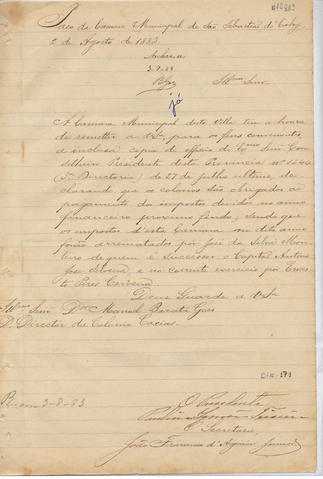 Paço da Camara Municipal de São Sebastião do Cahy
2 de Agosto de 1883.
3-8-83
Illmo Senr.
já
A Camara Municipal desta Villa tem a honra
de remetter a VSª, para os fins convenientes,
a inclusa copia do officio do Exmo Senr Con-
selheiro Presidente desta Provincia nº
(Directoria) de 27 de julho ultimo, de-
clarando que os colonos são obrigados ao
pagamento dos impostos devidos no anno
financeiro proximo findo, sendo que
os impostos d'esta Camara no dito anno
forão arrematados por José da Silva Mon-
teiro de quem é Successor o Capitão Antonio
José Silveira, e no corrente exercicio por
Pires Cerveira.
Deus Guarde a VSª
Illmo Senr Dor Manoel Barata Góes
D. Director da Colonia Caxias.
3-8-83
O Presidente
O Secretario
João Francisco d'Aguiar